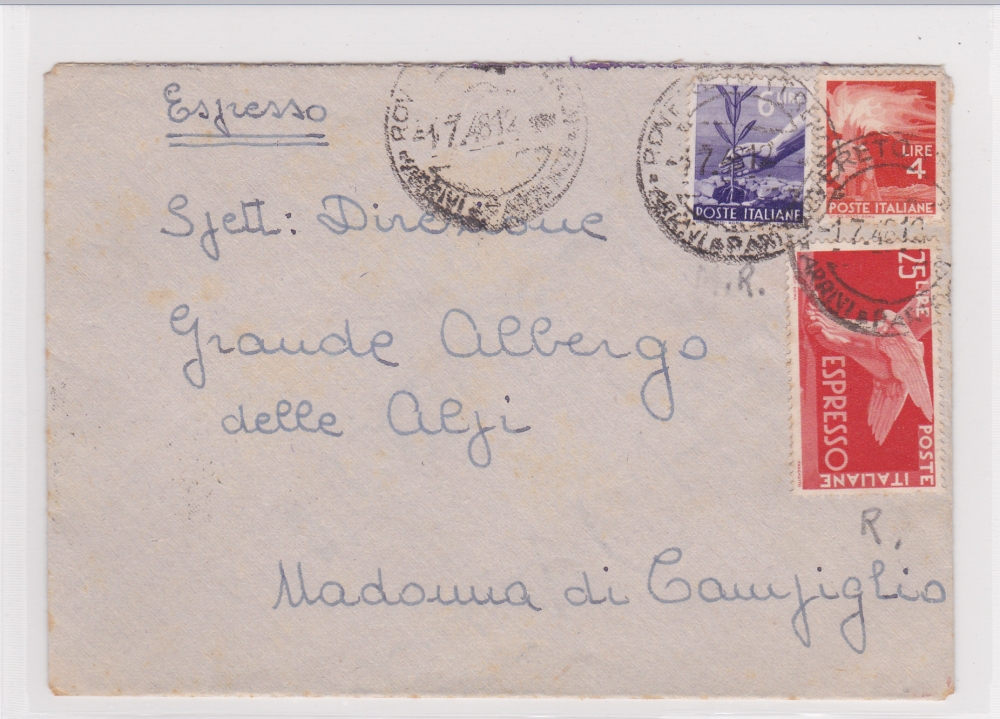 Espresso
Spett: Direzione
Grande Albergo
delle Alpi
Madonna di Campiglio
-1.7.4812
ARRIVI E
6 LIRE
POSTE ITALIANE
LIRE
4
POSTE ITALIANE
-1.7.4812
ARRIVI E
25 LIRE
ESPRESSO
POSTE
ITALIANE
R.